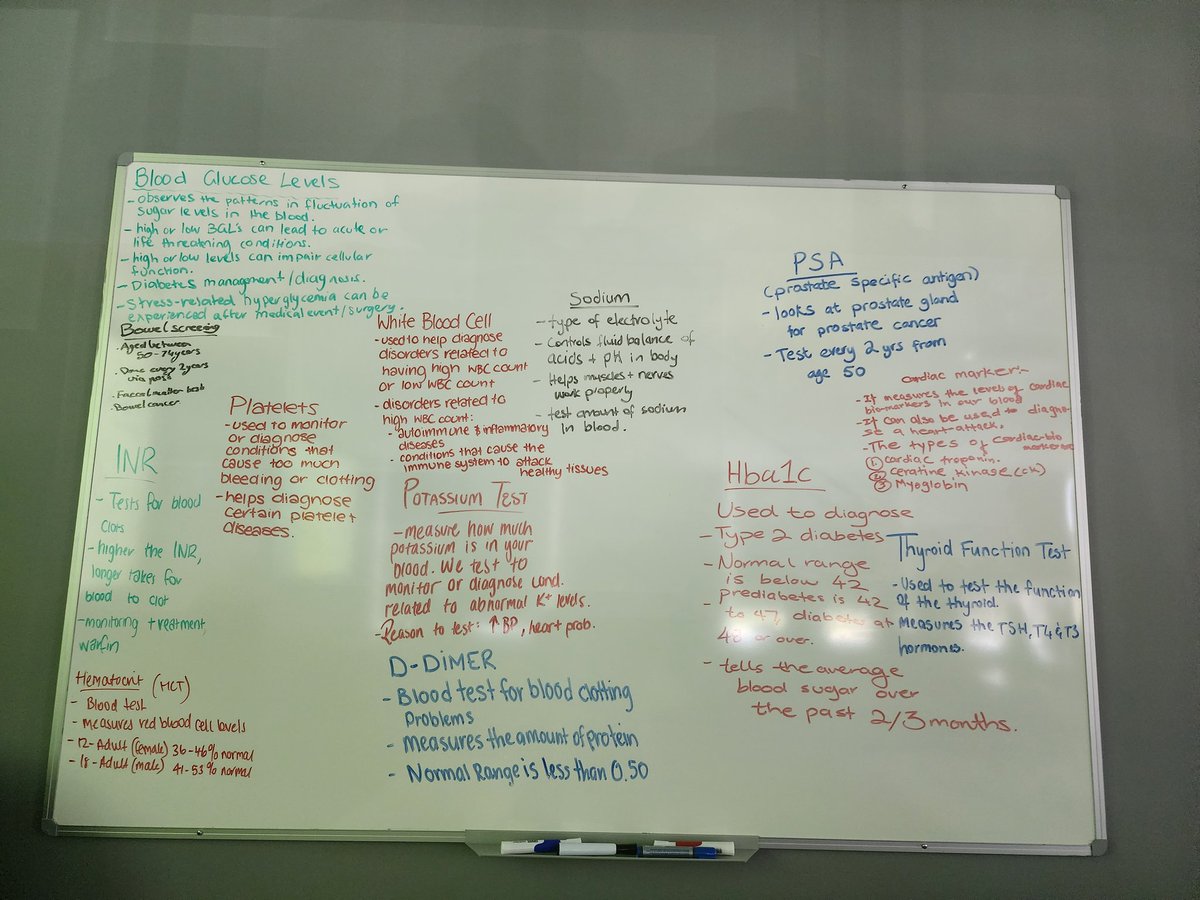 Blood Glucose Levels
- observes the patterns in fluctuation of
sugar levels in the blood.
- high or low BGL's can lead to acute or
life threatning conditions.
- high or low levels can impair cellular
function.
- Diabetes management/diagnosis.
- Stress-related hyperglycemia can be
experienced after medical event/surgery.
Bowel screening
· Aged between
50-74years
· Done every 2years
via post
· Faecal matter test
· Bowel cancer
INR
- Tests for blood
clots
- higher the INR,
longer takes for
blood to clot
- monitoring treatment,
warfin
Hematocrit (HCT)
- Blood test
- Measures red blood cell levels
- 12-Adult (female) 36-46% normal
- 18-Adult (male) 41-53% normal
Platelets
- used to monitor
or diagnose
conditions that
cause too much
bleeding or clotting
- helps diagnose
certain platelet
diseases.
White Blood Cell
- used to help diagnose
disorders related to
having high WBC count
or low WBC count
- disorders related to
high WBC count:
- autoimmune & inflammatory
diseases
- conditions that cause the
immune system to attack
healthy tissues
Potassium Test
- measure how much
potassium is in your
blood. We test to
monitor or diagnose cond.
related to abnormal K+ levels.
- Reason to test: ↑ BP, heart prob.
D-DiMER
- Blood test for blood clotting
Problems
- Measures the amount of protein
- Normal Range is less than 0.50
Sodium
- type of electrolyte
- Controls fluid balance of
acids + pH in body
- Helps muscles + nerves
work properly
- test amount of sodium
in blood.
PSA
(prostate specific antigen)
- looks at prostate gland
for prostate cancer
- Test every 2 yrs from
age 50
Cardiac marker:-
- It measures the levels of cardiac
bio-markers in our blood
- It can also be used to diagno-
se a heart-attack.
- The types of cardiac-bio
① cardiac troponin.
② ceratine kinase (ck)
③ Myoglobin
Hba1c
Used to diagnose
- Type 2 diabetes
- Normal range
is below 42
prediabetes is 42
- to 47, diabetes at
48 or over.
- tells the average
blood sugar over
the past 2/3 months.
Thyroid Function Test
- Used to test the function
of the thyroid.
Measures the TSH, T4 & T3
hormones.